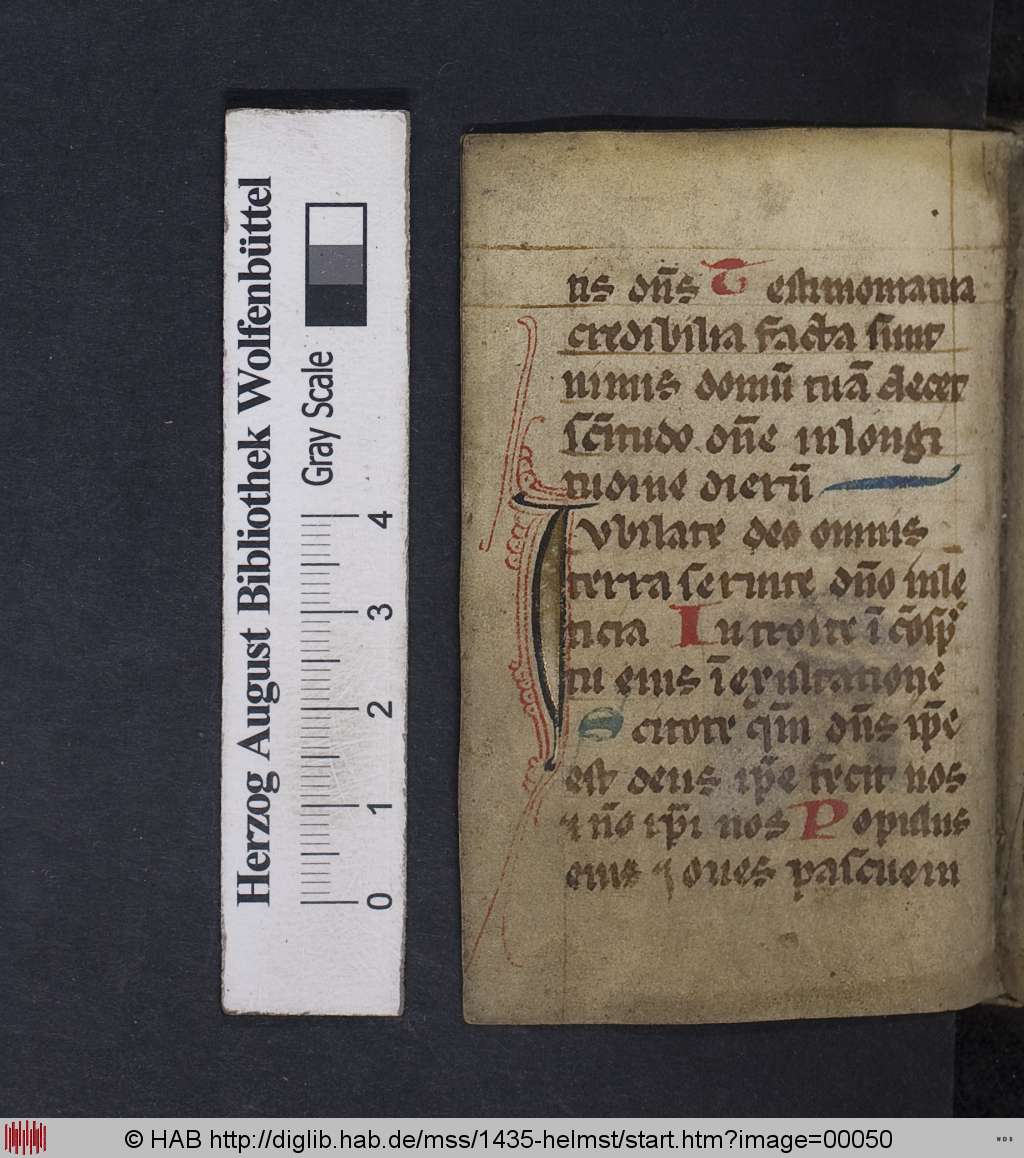 Herzog August Bibliothek Wolfenbüttel
Gray Scale
4
3
2
1
0
us dn̄s Testimonia tua
credibilia facta sunt
nimis domū tuā decet
sc̄itudo dn̄e in longi
tudine dierū
Jvbilate deo omnis
terra seruite dn̄o in le
ticia Introite ī cōsp̄
tu eius ī exultatione
Scitote qm̄ dn̄s ip̄e
est deus ip̄e fecit nos
⁊ nō ip̄i nos Populus
eius ⁊ oues pascue in
© HAB http://diglib.hab.de/mss/1435-helmst/start.htm?image=00050
WDB